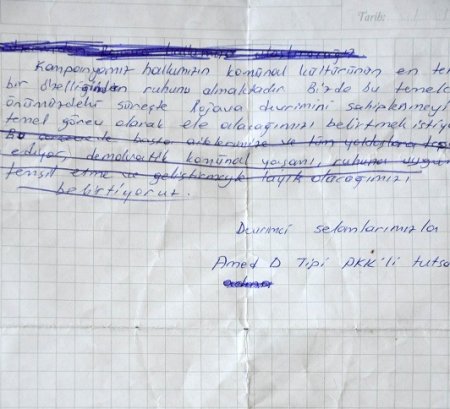 Tarih:
Kampanyamız halkımızın komünal kültürünün en te
bir özelliğinden ruhunu almaktadır. Bizde bu temelde
önümüzdeki süreçte Rojava devrimini sahiplenmeyi
temel görev olarak ele alacağımızı belirtmek istiyo
başta ailelerimize ve tüm yoldaşlara
ediyor, demokratik komünal yaşamı, ruhuna uygun
temsil etme ve geliştirmeyle layık olacağımızı
belirtiyoruz.
Devrimci selamlarımızla
Amed D Tipi PKK'li tutsa